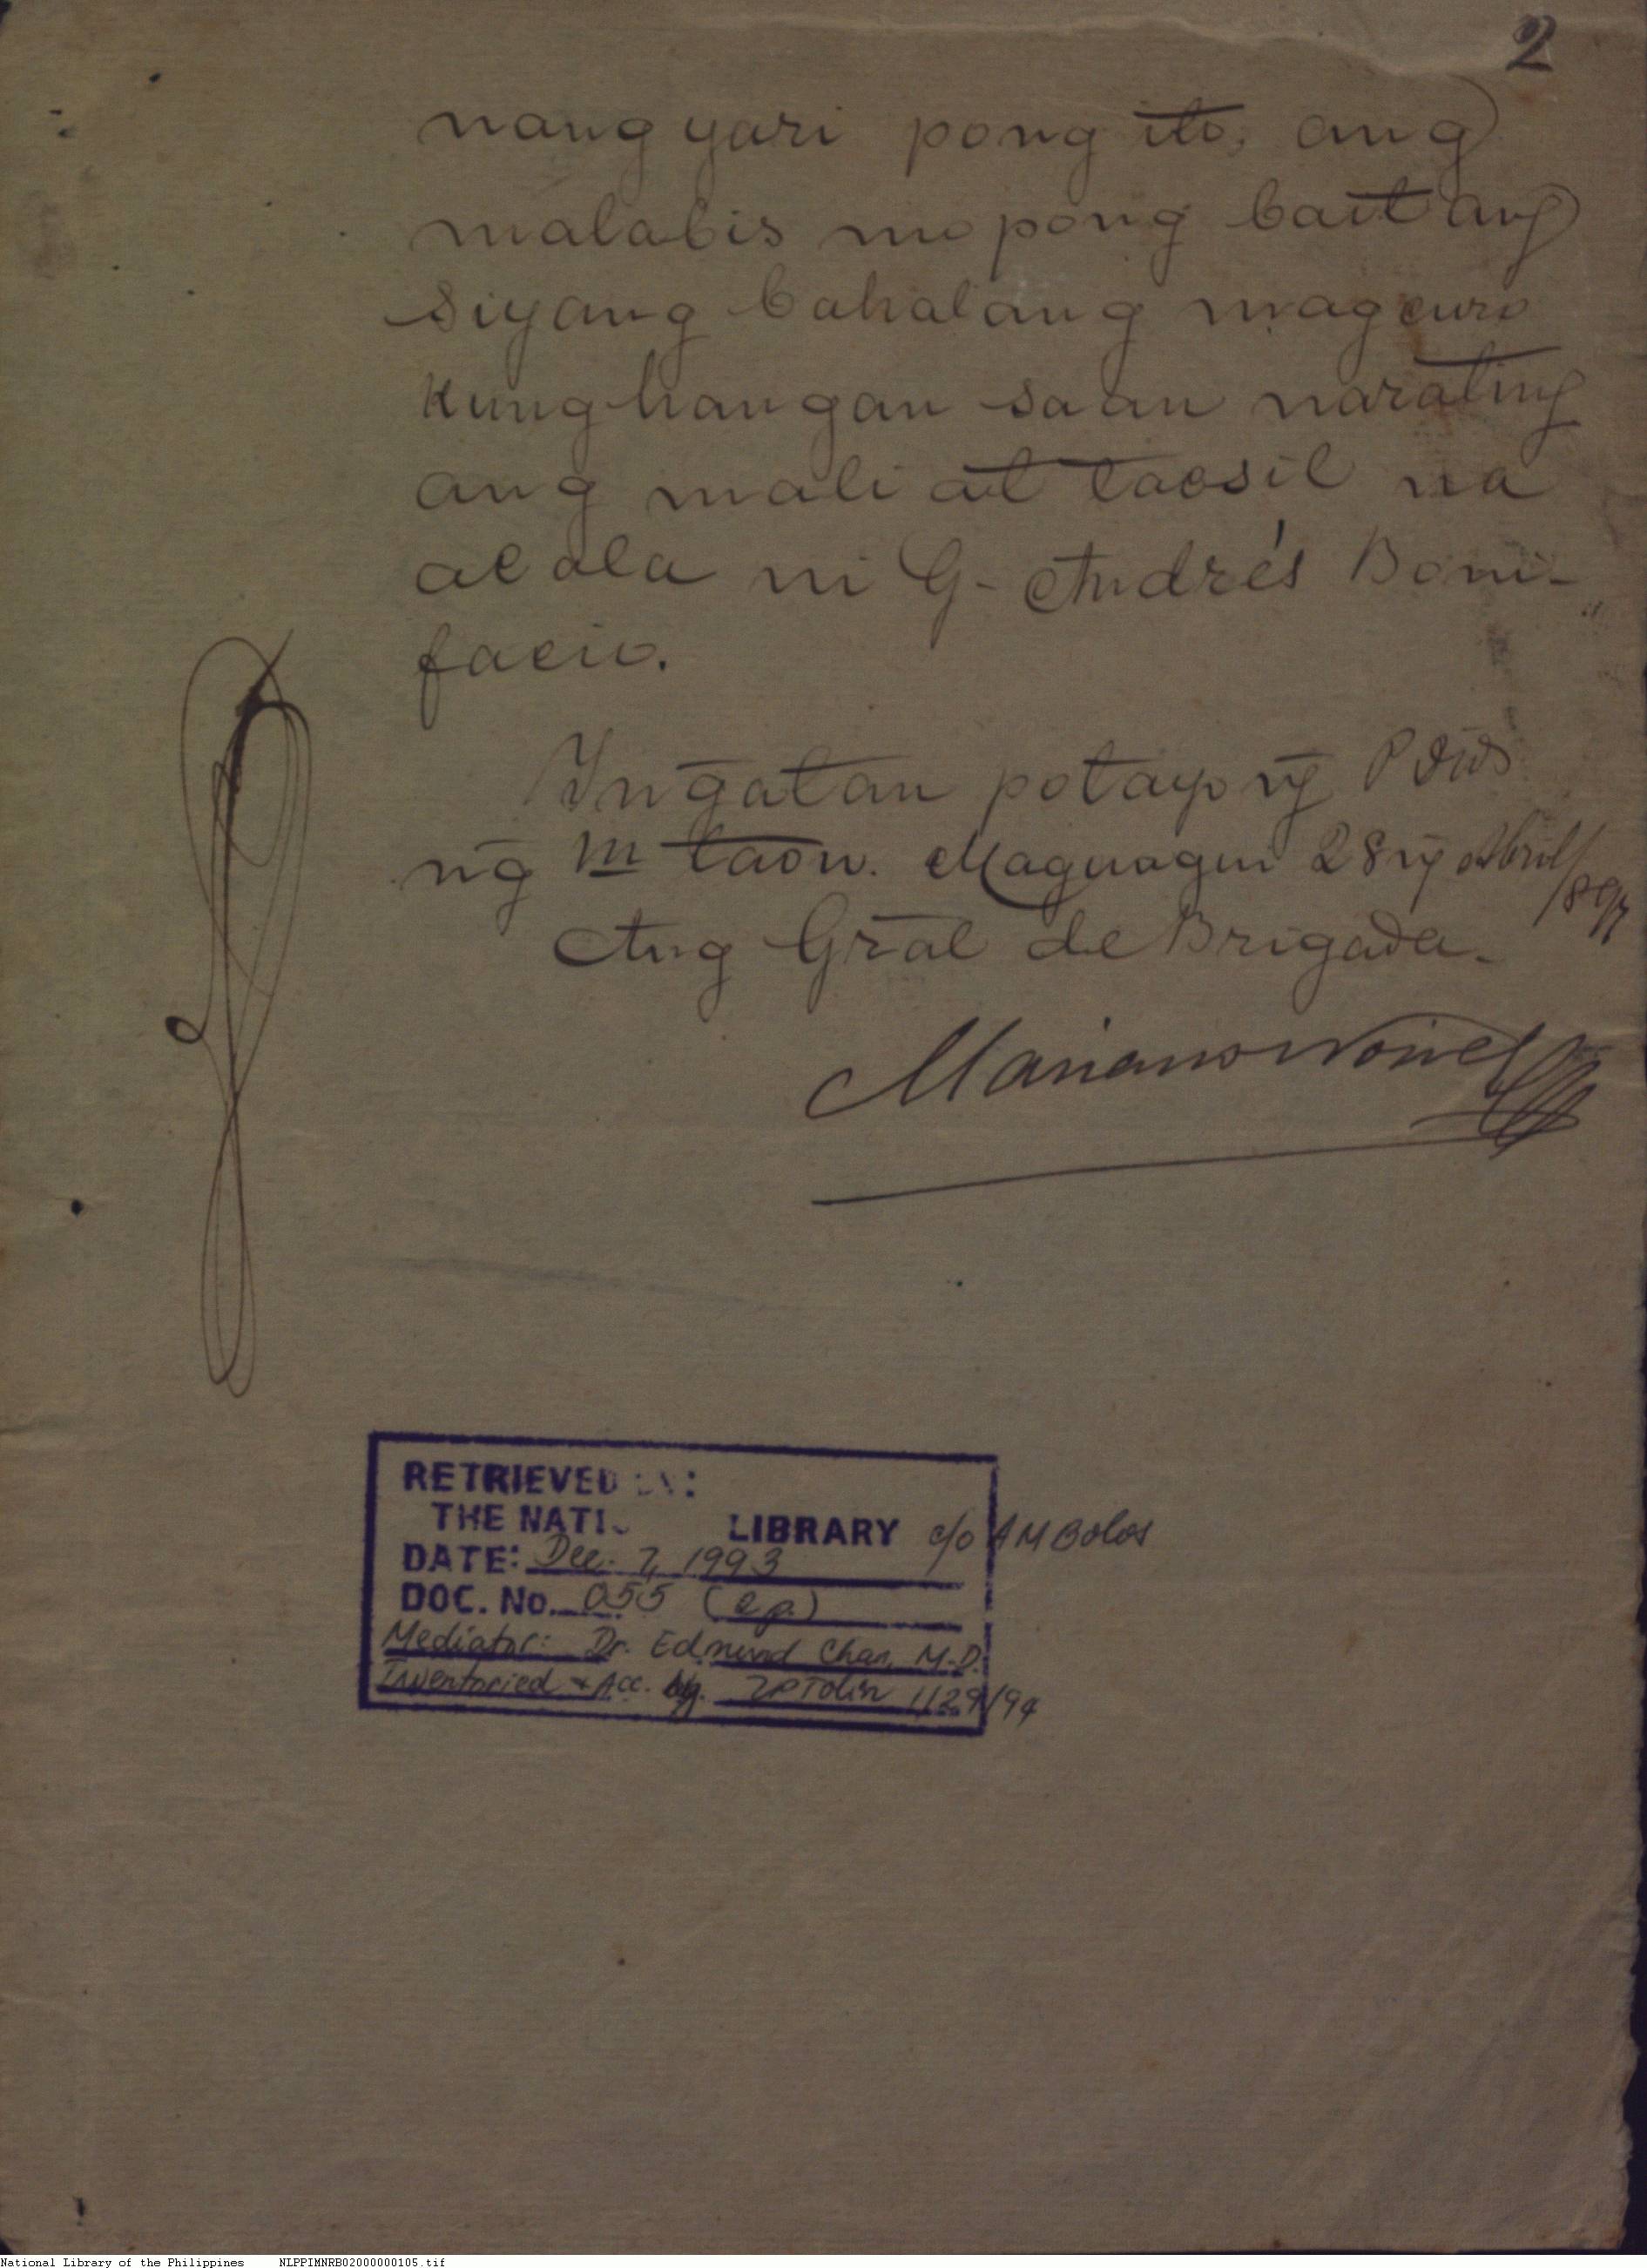 2
nangyari pong ito, ang
malabis mo pong bait ang
siyang bahalang magcuro
kung hangan saan narating
ang mali at tacsil na
acala ni G. Andrés Boni-
facio.
Ingatan po tayo ng̃ P Dios
ng̃ m taon. Maguagui 28 ng̃ Abril/
/897
Ang Gral de Brigada.
Mariano Noriel
RETRIEVED BY:
THE NATI LIBRARY c/o AM Bolos
DATE: Dec. 7, 1993
DOC. No. 055 (2 p.)
Mediator: Dr. Edmund Chan, M.D.
Inventoried & Acc. by. 1/29/94
National Library of the Philippines NLPPIMNRB02000000105.tif